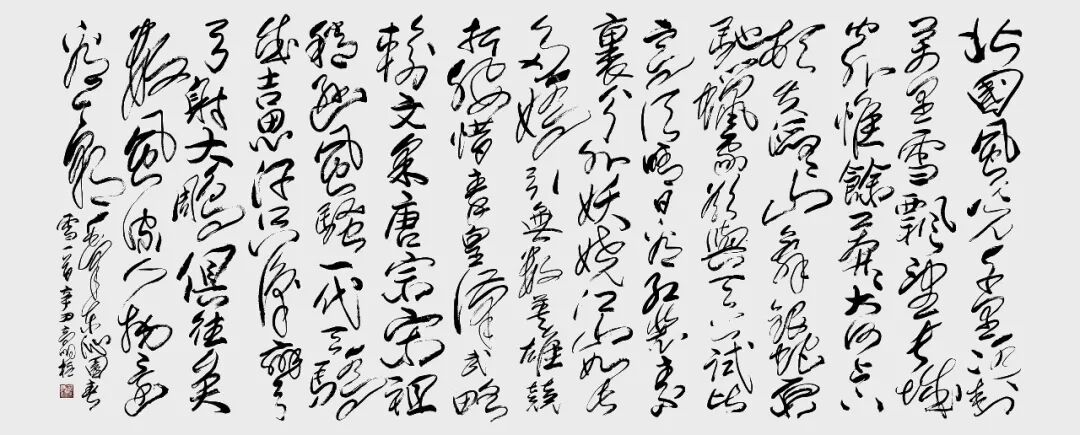 北國風光千里冰封
萬里雪飄望長城
內外惟餘莽莽大河上下
頓失滔滔山舞銀蛇原
馳蠟象欲與天公試比
高須晴日看紅裝素
裹分外妖嬈江山如此
多嬌引無數英雄競
折腰惜秦皇漢武略
輸文采唐宗宋祖
稍遜風騷一代天驕
成吉思汗只識彎弓
射大雕俱往矣
數風流人物還
看今朝
毛澤東沁園春
雪一首辛丑